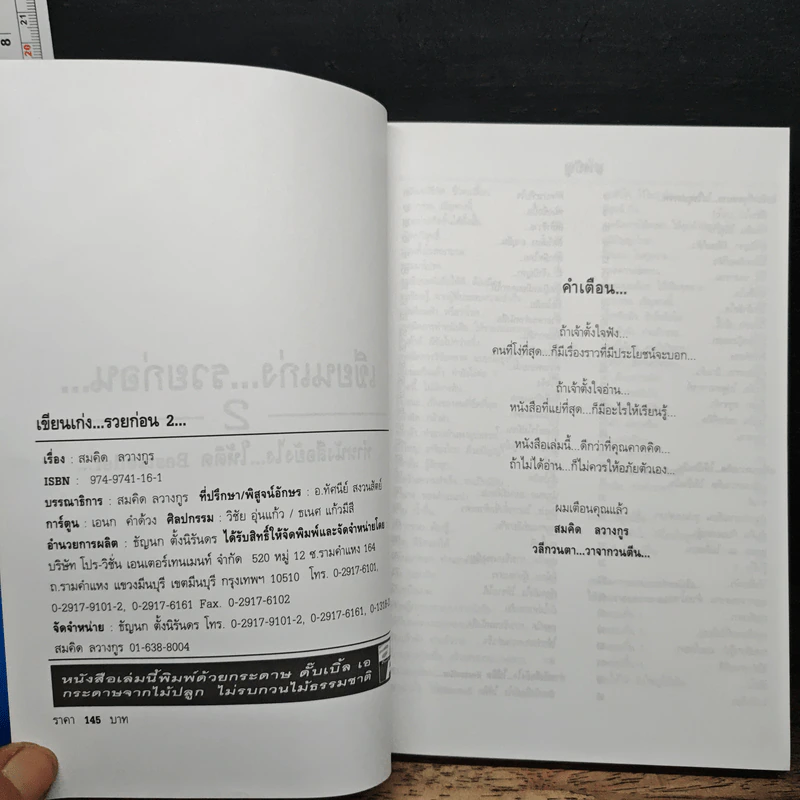 8
21
20
เขียนเก่ง...รวยก่อน 2...
เรื่อง : สมคิด ลวางกูร
ISBN : 974-9741-16-1
บรรณาธิการ : สมคิด ลวางกูร ที่ปรึกษา/พิสูจน์อักษร : อ.ทัศนีย์ สงวนสัตย์
การ์ตูน : เอนก คำด้วง ศิลปกรรม : วิชัย อุ่นแก้ว / ธเนศ แก้วมีสี
อำนวยการผลิต : ธัญนก ตั้งนิรันดร ได้รับสิทธิ์ให้จัดพิมพ์และจัดจำหน่ายโดย
บริษัท โปร-วิชั่น เอนเตอร์เทนเมนท์ จำกัด 520 หมู่ 12 ซ.รามคำแหง 164
ถ.รามคำแหง แขวงมีนบุรี เขตมีนบุรี กรุงเทพฯ 10510 โทร. 0-2917-6101,
0-2917-9101-2, 0-2917-6161 Fax. 0-2917-6102
จัดจำหน่าย : ธัญนก ตั้งนิรันดร โทร. 0-2917-9101-2, 0-2917-6161,
สมคิด ลวางกูร 01-638-8004
หนังสือเล่มนี้พิมพ์ด้วยกระดาษ ดั๊บเบิ้ล เอ
กระดาษจากไม้ปลูก ไม่รบกวนไม้ธรรมชาติ
ราคา 145 บาท
คำเตือน...
ถ้าเจ้าตั้งใจฟัง...
คนที่โง่ที่สุด...ก็มีเรื่องราวที่มีประโยชน์จะบอก...
ถ้าเจ้าตั้งใจอ่าน...
หนังสือที่แย่ที่สุด...ก็มีอะไรให้เรียนรู้...
หนังสือเล่มนี้...ดีกว่าที่คุณคาดคิด...
ถ้าไม่ได้อ่าน...ก็ไม่ควรให้อภัยตัวเอง...
ผมเตือนคุณแล้ว
สมคิด ลวางกูร
วลีกวนตา...วาจากวนตีน...